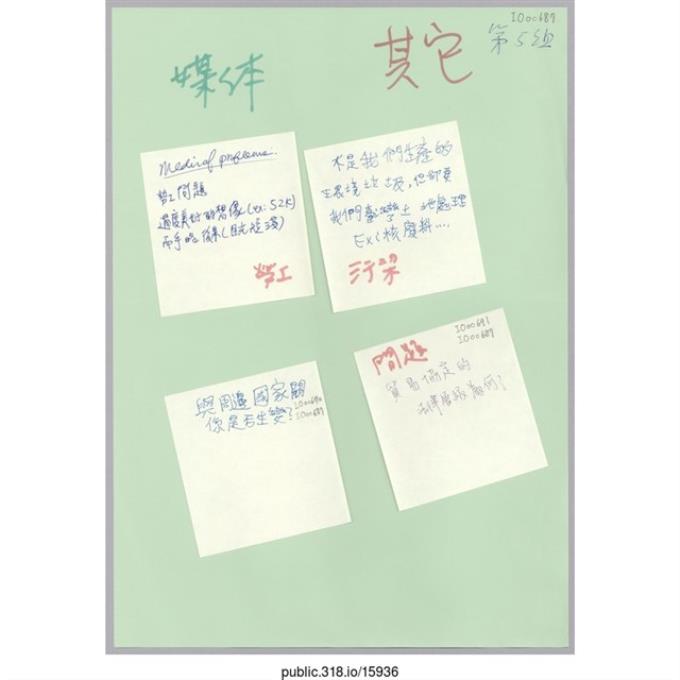 IO00687
第5组
媒体
其它
Medical problems.
勞工問題
過度美好的想像(ex: 52K)
而手
後果(
勞工
不是我們生產的
生態境垃圾,但卻要
我們臺灣 土地處理
Ex: 核廢料....
污染
與周邊國家關
係是否生變?
IO00690
IO00687
IO00691
IO00687
問題
貿易協定的
法律層級為何?
public.318.io/15936